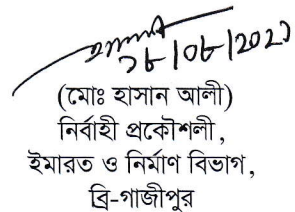 ২৮/০৮/২০২১
(মোঃ হাসান আলী)
নির্বাহী প্রকৌশলী,
ইমারত ও নির্মাণ বিভাগ,
ব্রি-গাজীপুর